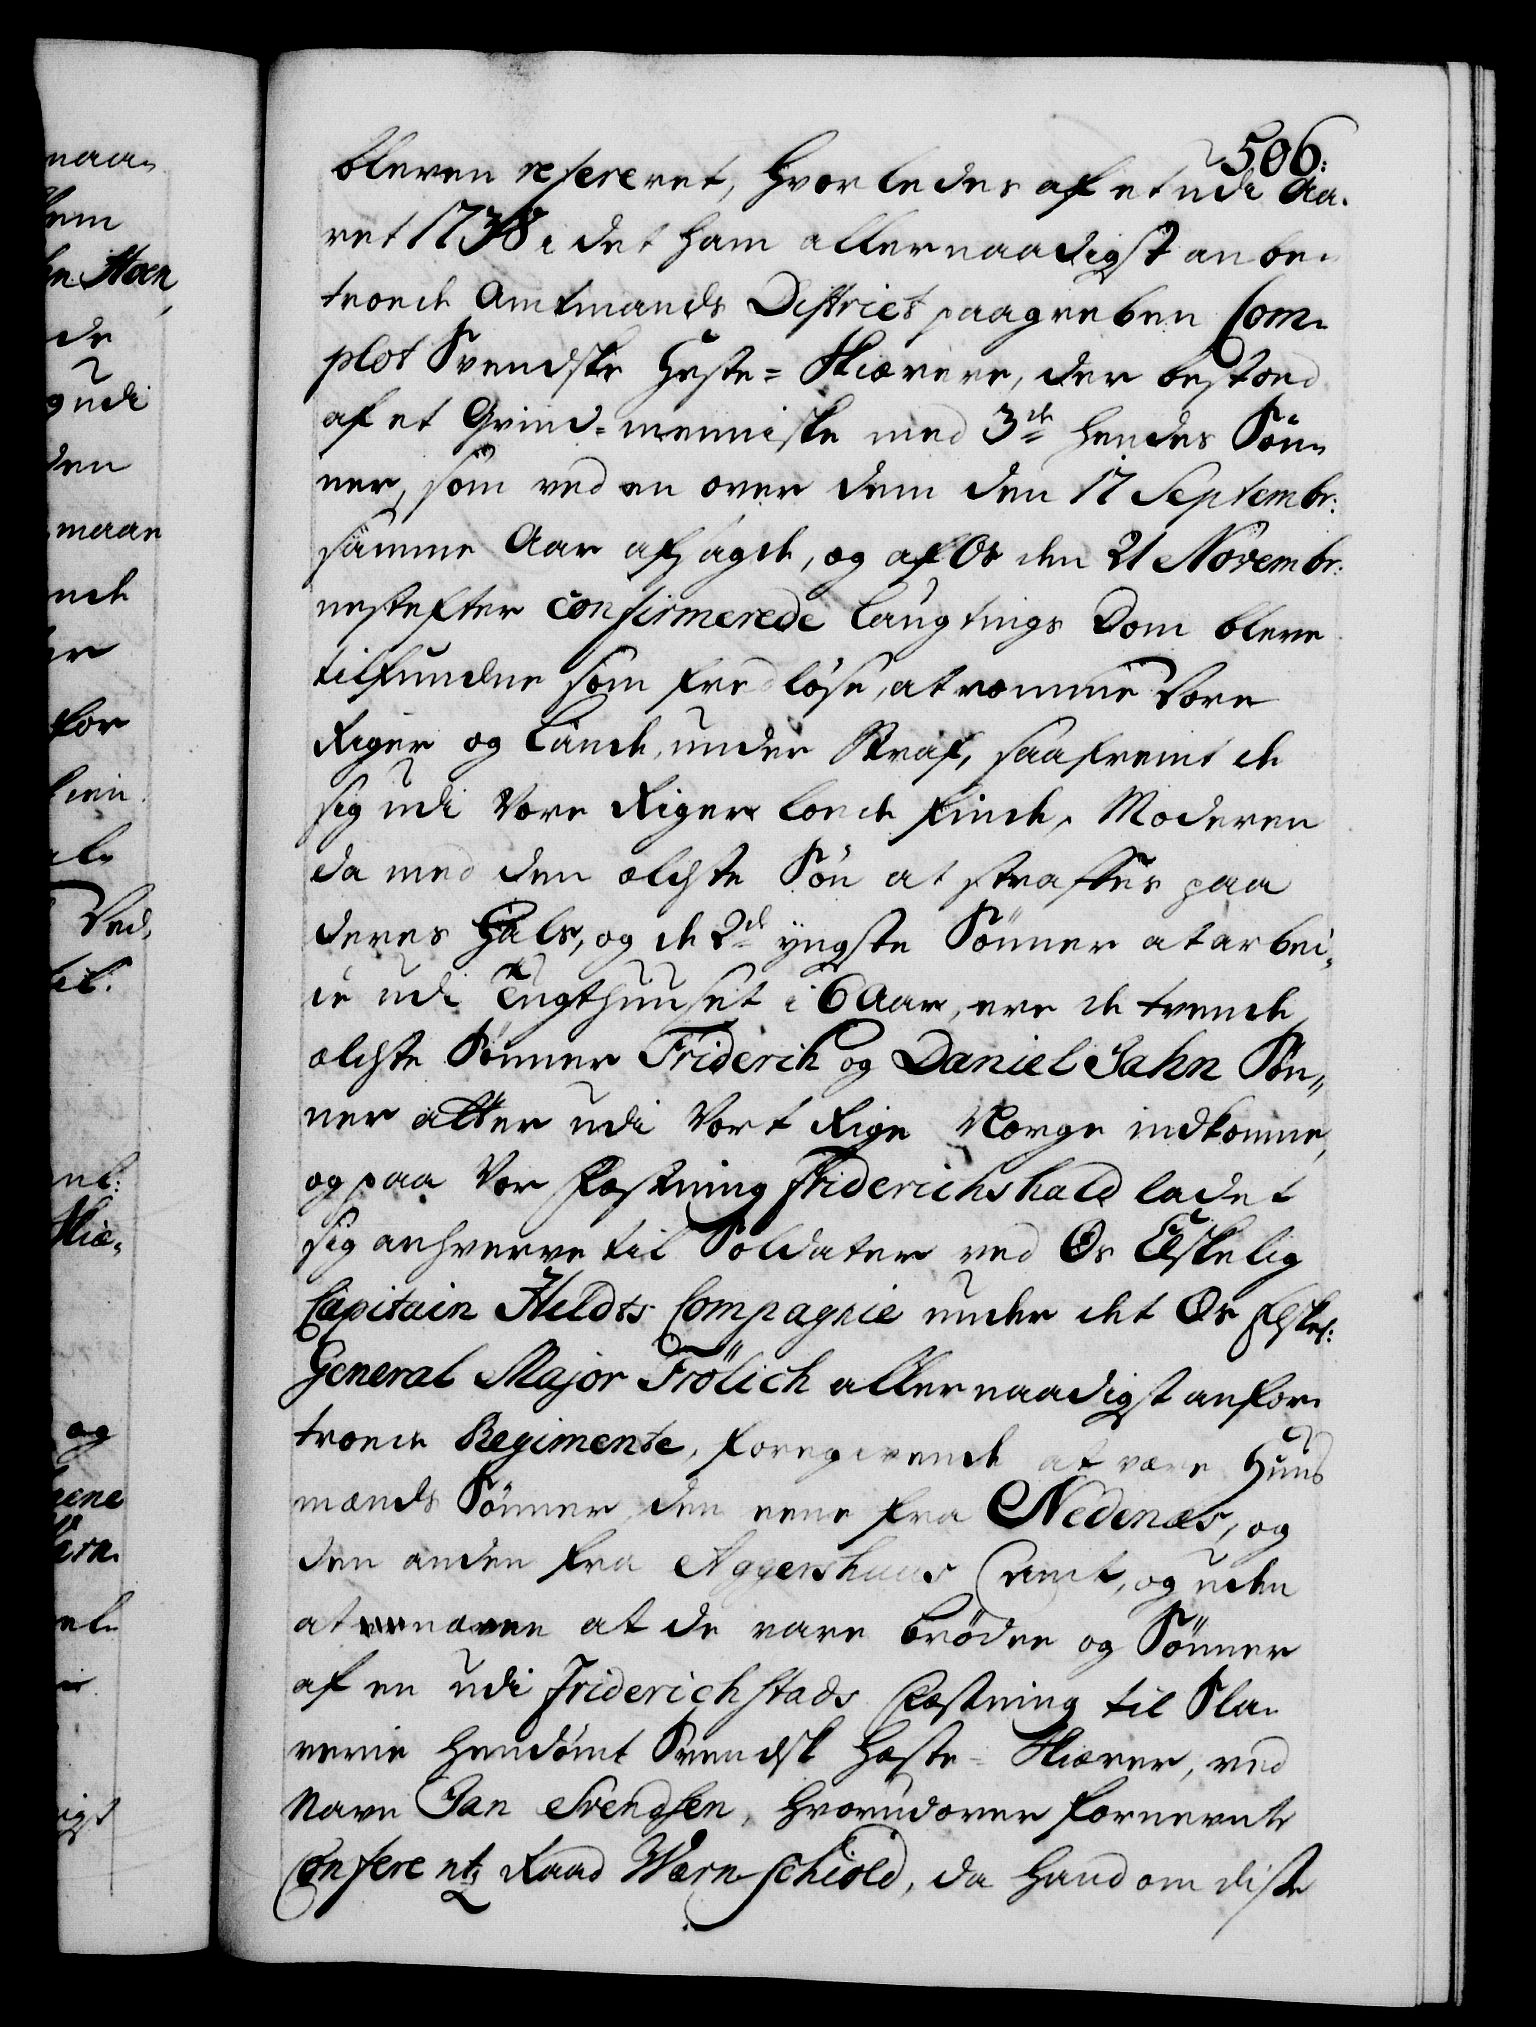 506.
bleven refereret, hvorledes af et udi Aa-
ret 1738 i det ham allernaadigst anbe-
troede Amtmands District paagreben Com-
plot Svendske Heste-Skiærere, der bestoed
af et Qvind-menniske med 3de hendes Søn-
ner, som ved en over dem den 17 Septembr:
samme Aar afsagde, og af Os den 21 Novembr:
nestefter confirmerede Laugtings Dom bleve
tilfundne som fredløse, at rømme Vore
Riger og Lande, under Straf, saafremt de
sig udi Vore Riger lode finde, Moderen
da med den eldste Søn at straffes paa
deres Hals, og de 2de yngste Sønner at arbei-
de udi Tugthuuset i 6 Aar, ere de tvende
eldste Sønner Friderich og Daniel Jahn Søn-
ner atter udi Vort Rige Norge indkomne,
og paa Vor Fæstning Friderichshald ladet
sig anhverve til Soldater ved Os Elskelig
Capitain Heldts Compagnie under det Os Elskel:
General Major Frölich allernaadigst anfor-
troede Regimente, foregivende at være Huus-
mænds Sønner, den eene fra Nedenæs, og
den anden fra Aggershuus Amt, og uden
at nævne at de vare Brødre og Sønner
af en udi Friderichstads Fæstning til Sla-
verie hendømt Svendsk Heste-Skiærer, ved
Navn Jan Svendsen, hvorudover fornevnte
Conferentz Raad Wærnschiold, da hand om diste